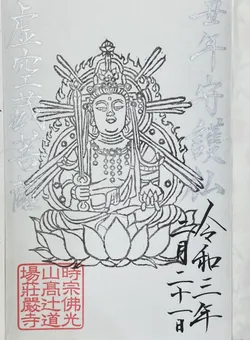 丑年守護仏
虚空蔵菩薩
令和三年
二月二十一日
時宗佛光
山髙辻道
場莊嚴寺